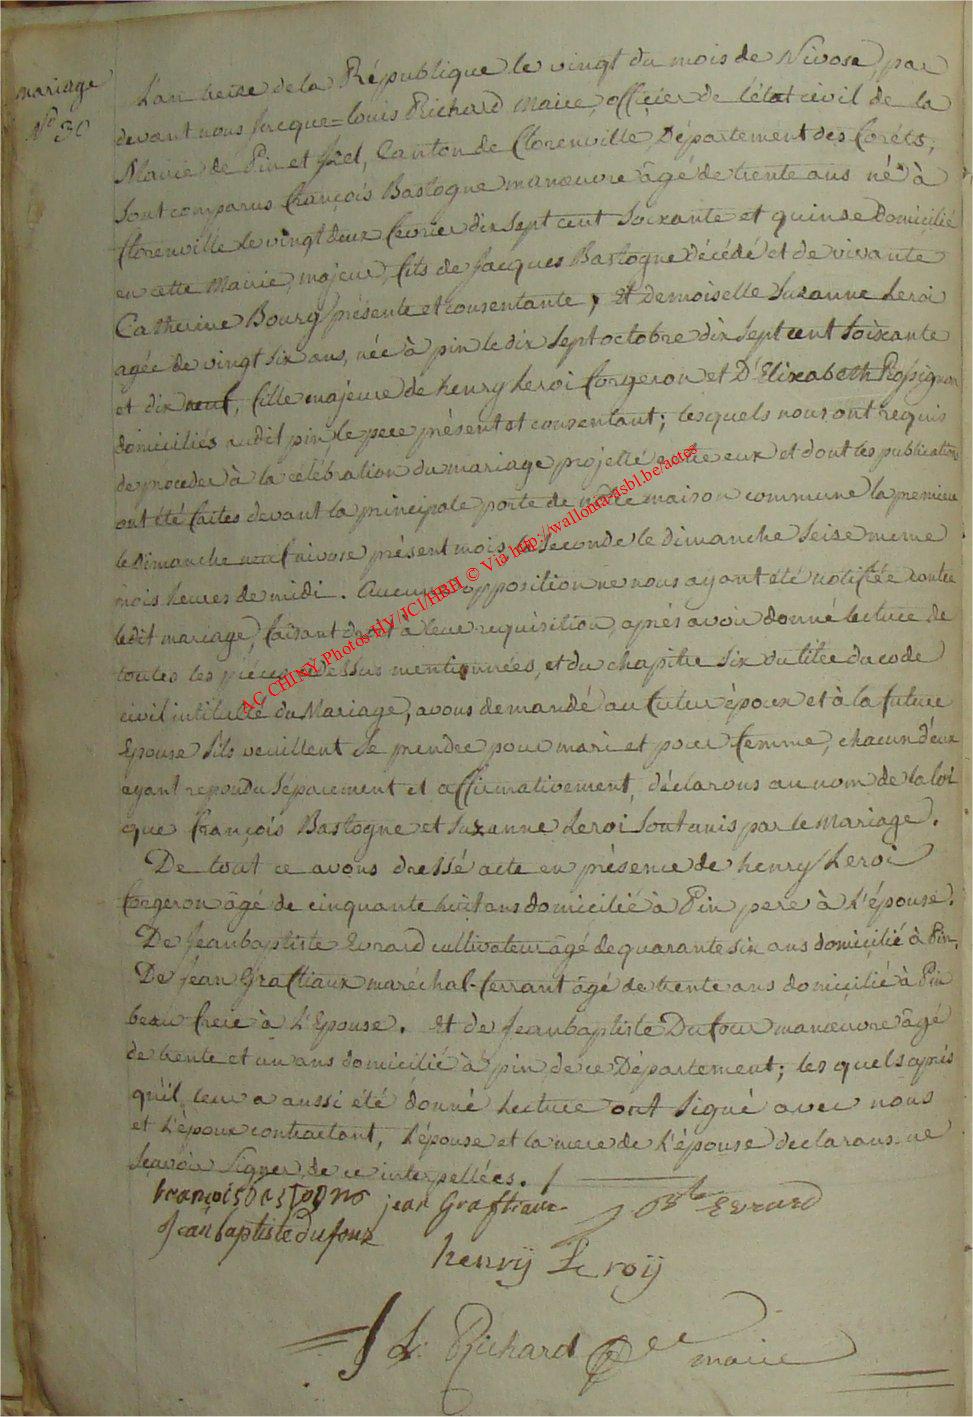 mariage
No 30
L'an treize de la République le vingt du mois de Nivose, par
devant nous Jacque=Louis Richard Maire, officier de l'état civil de la
Mairie de Pin et Izel, Canton de Florenville, Département des Forêts,
Sont comparus François Bastogne manœuvre âgé de trente ans né à
Florenville le vingt deux fevrier dix Sept cent Soixante et quinze Domicilié
en cette Mairie, majeur, fils de Jacques Bastogne Décédé et de vivante
Catherine Bourg présente et consentante, Et demoiselle Suzanne Leroi
agée de vingt Six ans, née à pin le dix Sept octobre dix Sept cent Soixante
et dix neuf, fille majeure de henry Leroi forgeron et De Elizabeth Rossignon
domiciliés audit pin, le pere présent et consentant; lesquels nous ont requis
de proceder à la célébration du mariage projetté entre eux et dont les publications
ont été faites devant la principale porte de notre maison commune la premiere
le Dimanche neuf nivose présent mois, la Seconde le Dimanche Seise meme
mois heures de midi. Aucune opposition ne nous ayant été notifiée contre
ledit mariage, faisant droit à leur requisition, après avoir donné lecture de
toutes les pièces ci dessus mentionnées, et du chapitre Six du titre du code
civil intitulé du Mariage, avons demandé au futur époux et à la future
Epouse S'ils veuillent Se prendre pour mari et pour femme, chacun d'eux
ayant repondu Séparement et affirmativement, déclarons au nom de la loi
que François Bastogne et Suzanne Leroi Sont unis par le Mariage.
De tout ce avons dressé acte en présence de henry Leroi
forgeron âgé de cinquante huit ans domicilié à Pin pere à L'épouse.
De Jean baptiste Evrard cultivateur âgé de quarante six ans domicilié à Pin,
De Jean Graftiaux maréchal-ferrant âgé de trente ans domicilié à Pin
beau frere à L'Epouse. Et de Jean baptiste Dufour manœuvre âgé
de trente et un ans domicilié à pin, de ce Département; les quels après
qu'il leur a aussi été donné Lecture ont Signé avec nous
et L'époux contractant, L'épouse et la mere de L'épouse declarans ne
Scavoir Signer de ce interpellées. /
françois Bastogne jean Graftiaux JBte Evrard
Jean baptiste dufour
henrÿ Le roÿ
J L: Richard maire
AC CHINY Photos HV/JCI/HBH © Via http://wallonia-asbl.be/actes